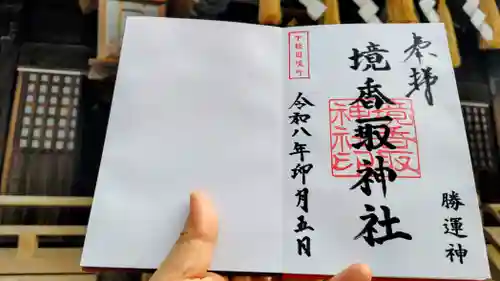 奉拝
勝運神
境香取神社
境香取
神社印
下総国境町
令和八年卯月五日